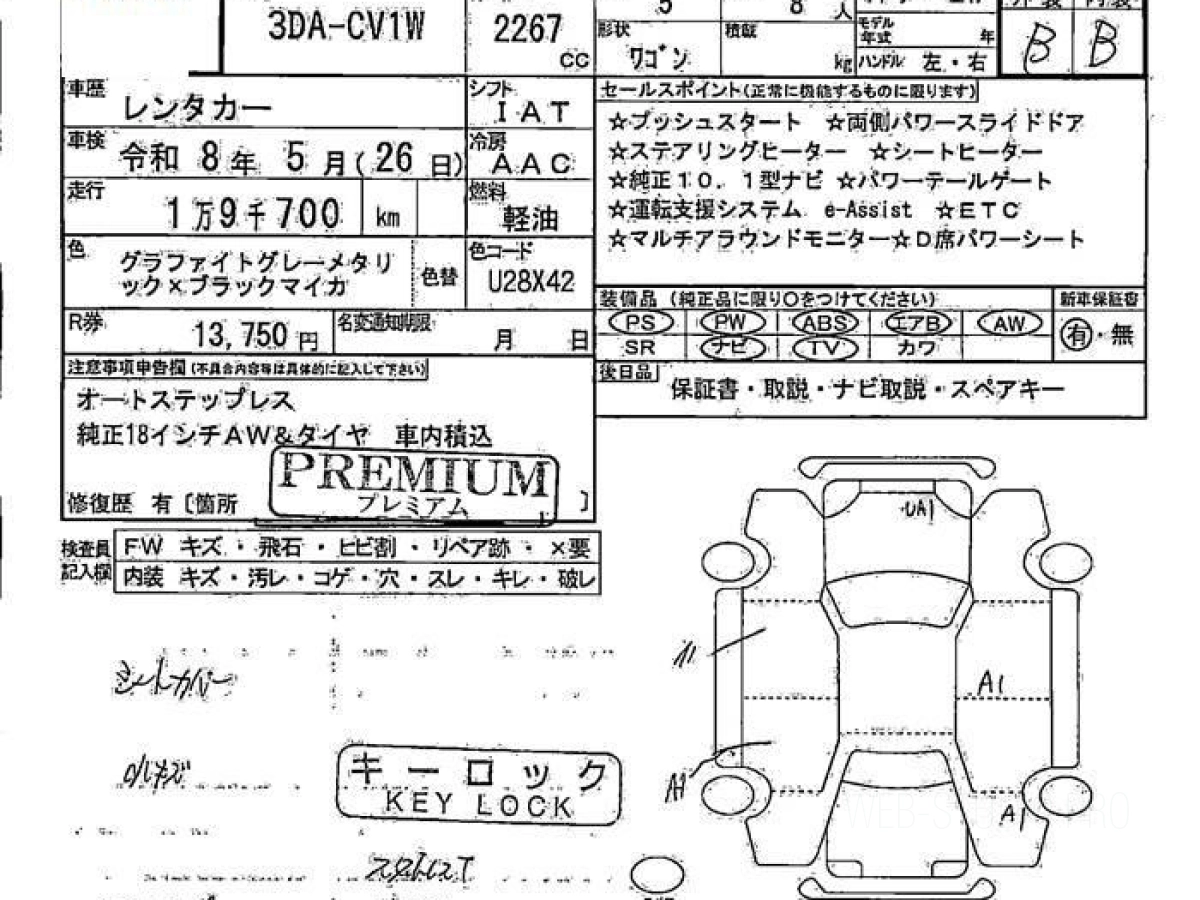 3DA-CV1W
2267
cc
5
8
人
形状
ワゴン
積載
kg
モデル
年式
年
ハンドル 左・右
B B
車歴
レンタカー
シフト
IAT
車検
令和 8年 5月(26日)
冷房
AAC
走行
1万9千700 km
燃料
軽油
色
グラファイトグレーメタリ
ック×ブラックマイカ
色替
色コード
U28X42
R券
13,750円
名変通知期限
月 日
セールスポイント(正常に機能するものに限ります)
☆プッシュスタート ☆両側パワースライドドア
☆ステアリングヒーター ☆シートヒーター
☆純正10.1型ナビ ☆パワーテールゲート
☆運転支援システム e-Assist ☆ETC
☆マルチアラウンドモニター☆D席パワーシート
装備品 (純正品に限り○をつけてください)
新車保証書
PS PW ABS エアB AW
SR ナビ TV カワ
有・無
後日品
保証書・取説・ナビ取説・スペアキー
注意事項申告欄(不具合内容等は具体的に記入して下さい)
オートステップレス
純正18インチAW&タイヤ 車内積込
PREMIUM
プレミアム
修復歴 有〔箇所 〕
検査員
記入欄
FW キズ・飛石・ヒビ割・リペア跡・×要
内装 キズ・汚レ・コゲ・穴・スレ・キレ・破レ
シートカバー
キーロック
KEY LOCK
UA1
A1
A1
A1